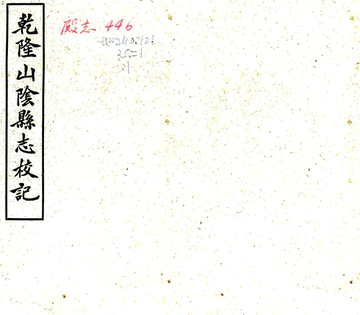 乾隆山陰縣志校記
殿志 446